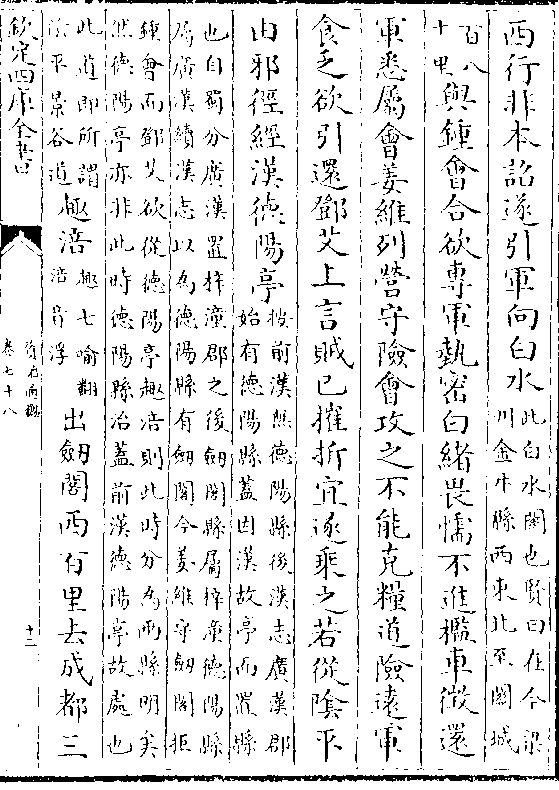 西行非本詔遂引軍向白水此白水關也賢曰在今梁
州金牛縣西東北至關城
百八
十里與鍾會合欲專軍埶密白緒畏懦不進檻車徴還
軍悉屬會姜維列營守險會攻之不能克糧道險逺軍
食乏欲引還鄧艾上言賊已摧折宜遂乗之若從隂平
由邪徑經漢德陽亭按前漢無德陽縣後漢志廣漢郡
始有德陽縣蓋因漢故亭而置縣
也自蜀分廣漢置梓潼郡之後劒閣縣屬梓潼德陽縣
屬廣漢續漢志以為德陽縣有劒閣今姜維守劒閣拒
鍾會而鄧艾欲從德陽亭趣涪則此時分為兩縣明矣
然德陽亭亦非此時德陽縣治蓋前漢德陽亭故處也
此道即所謂
隂平景谷道趣涪趣七喻翻
涪音浮出劒閣西百里去成都三
欽定四庫全書
資治通鑑
卷七十八
十二